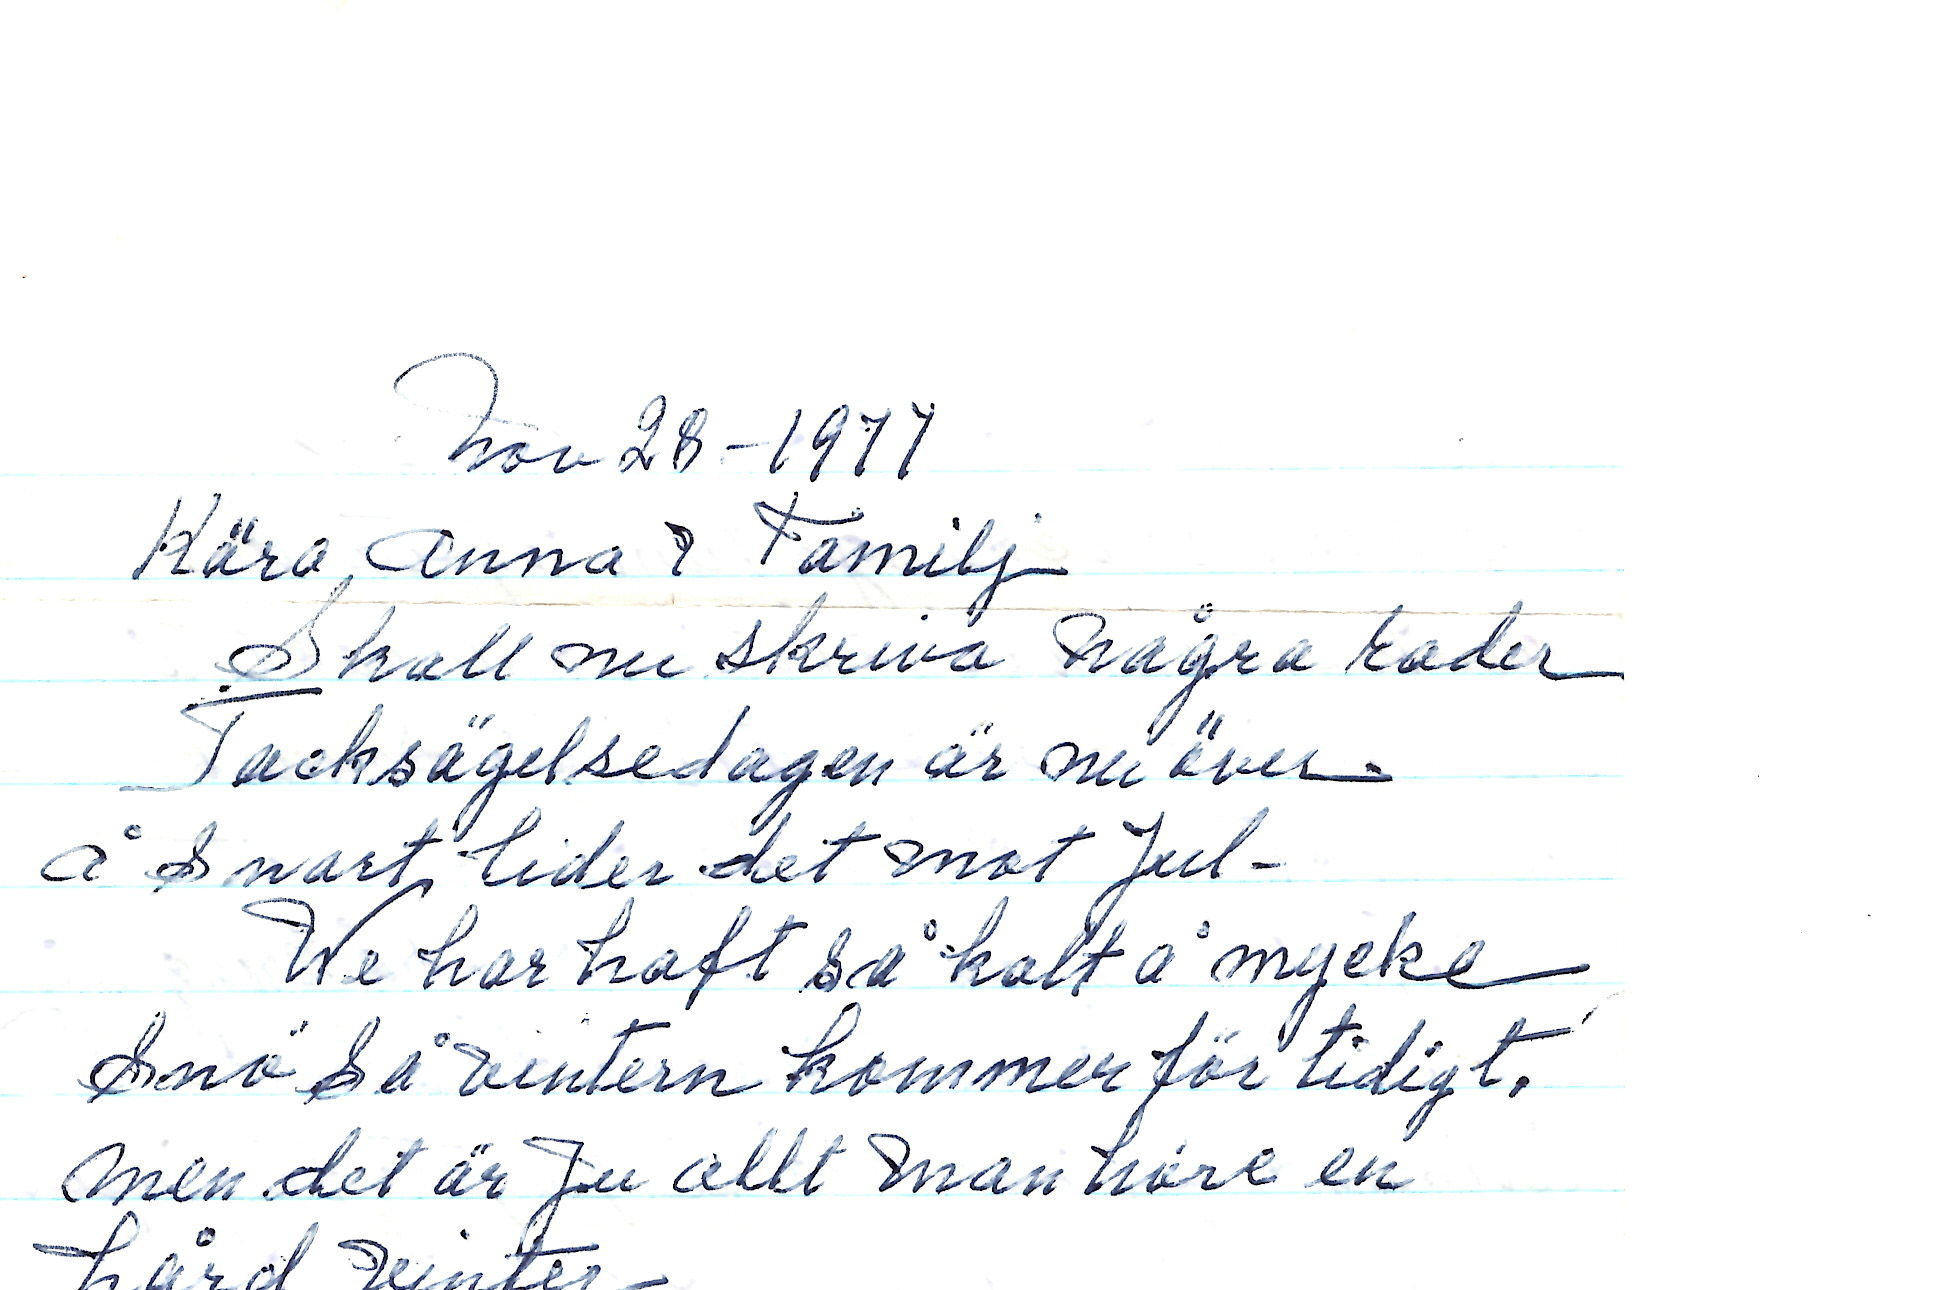 Nov 28 - 1977
Kära Anna & Familj
Skall nu skriva några rader
Tacksägelsedagen är nu över.
å snart lider det mot Jul -
We har haft så kalt å mycke
Snö så vintern kommer för tidigt.
men det är Ju allt man höre en
hård vinter -